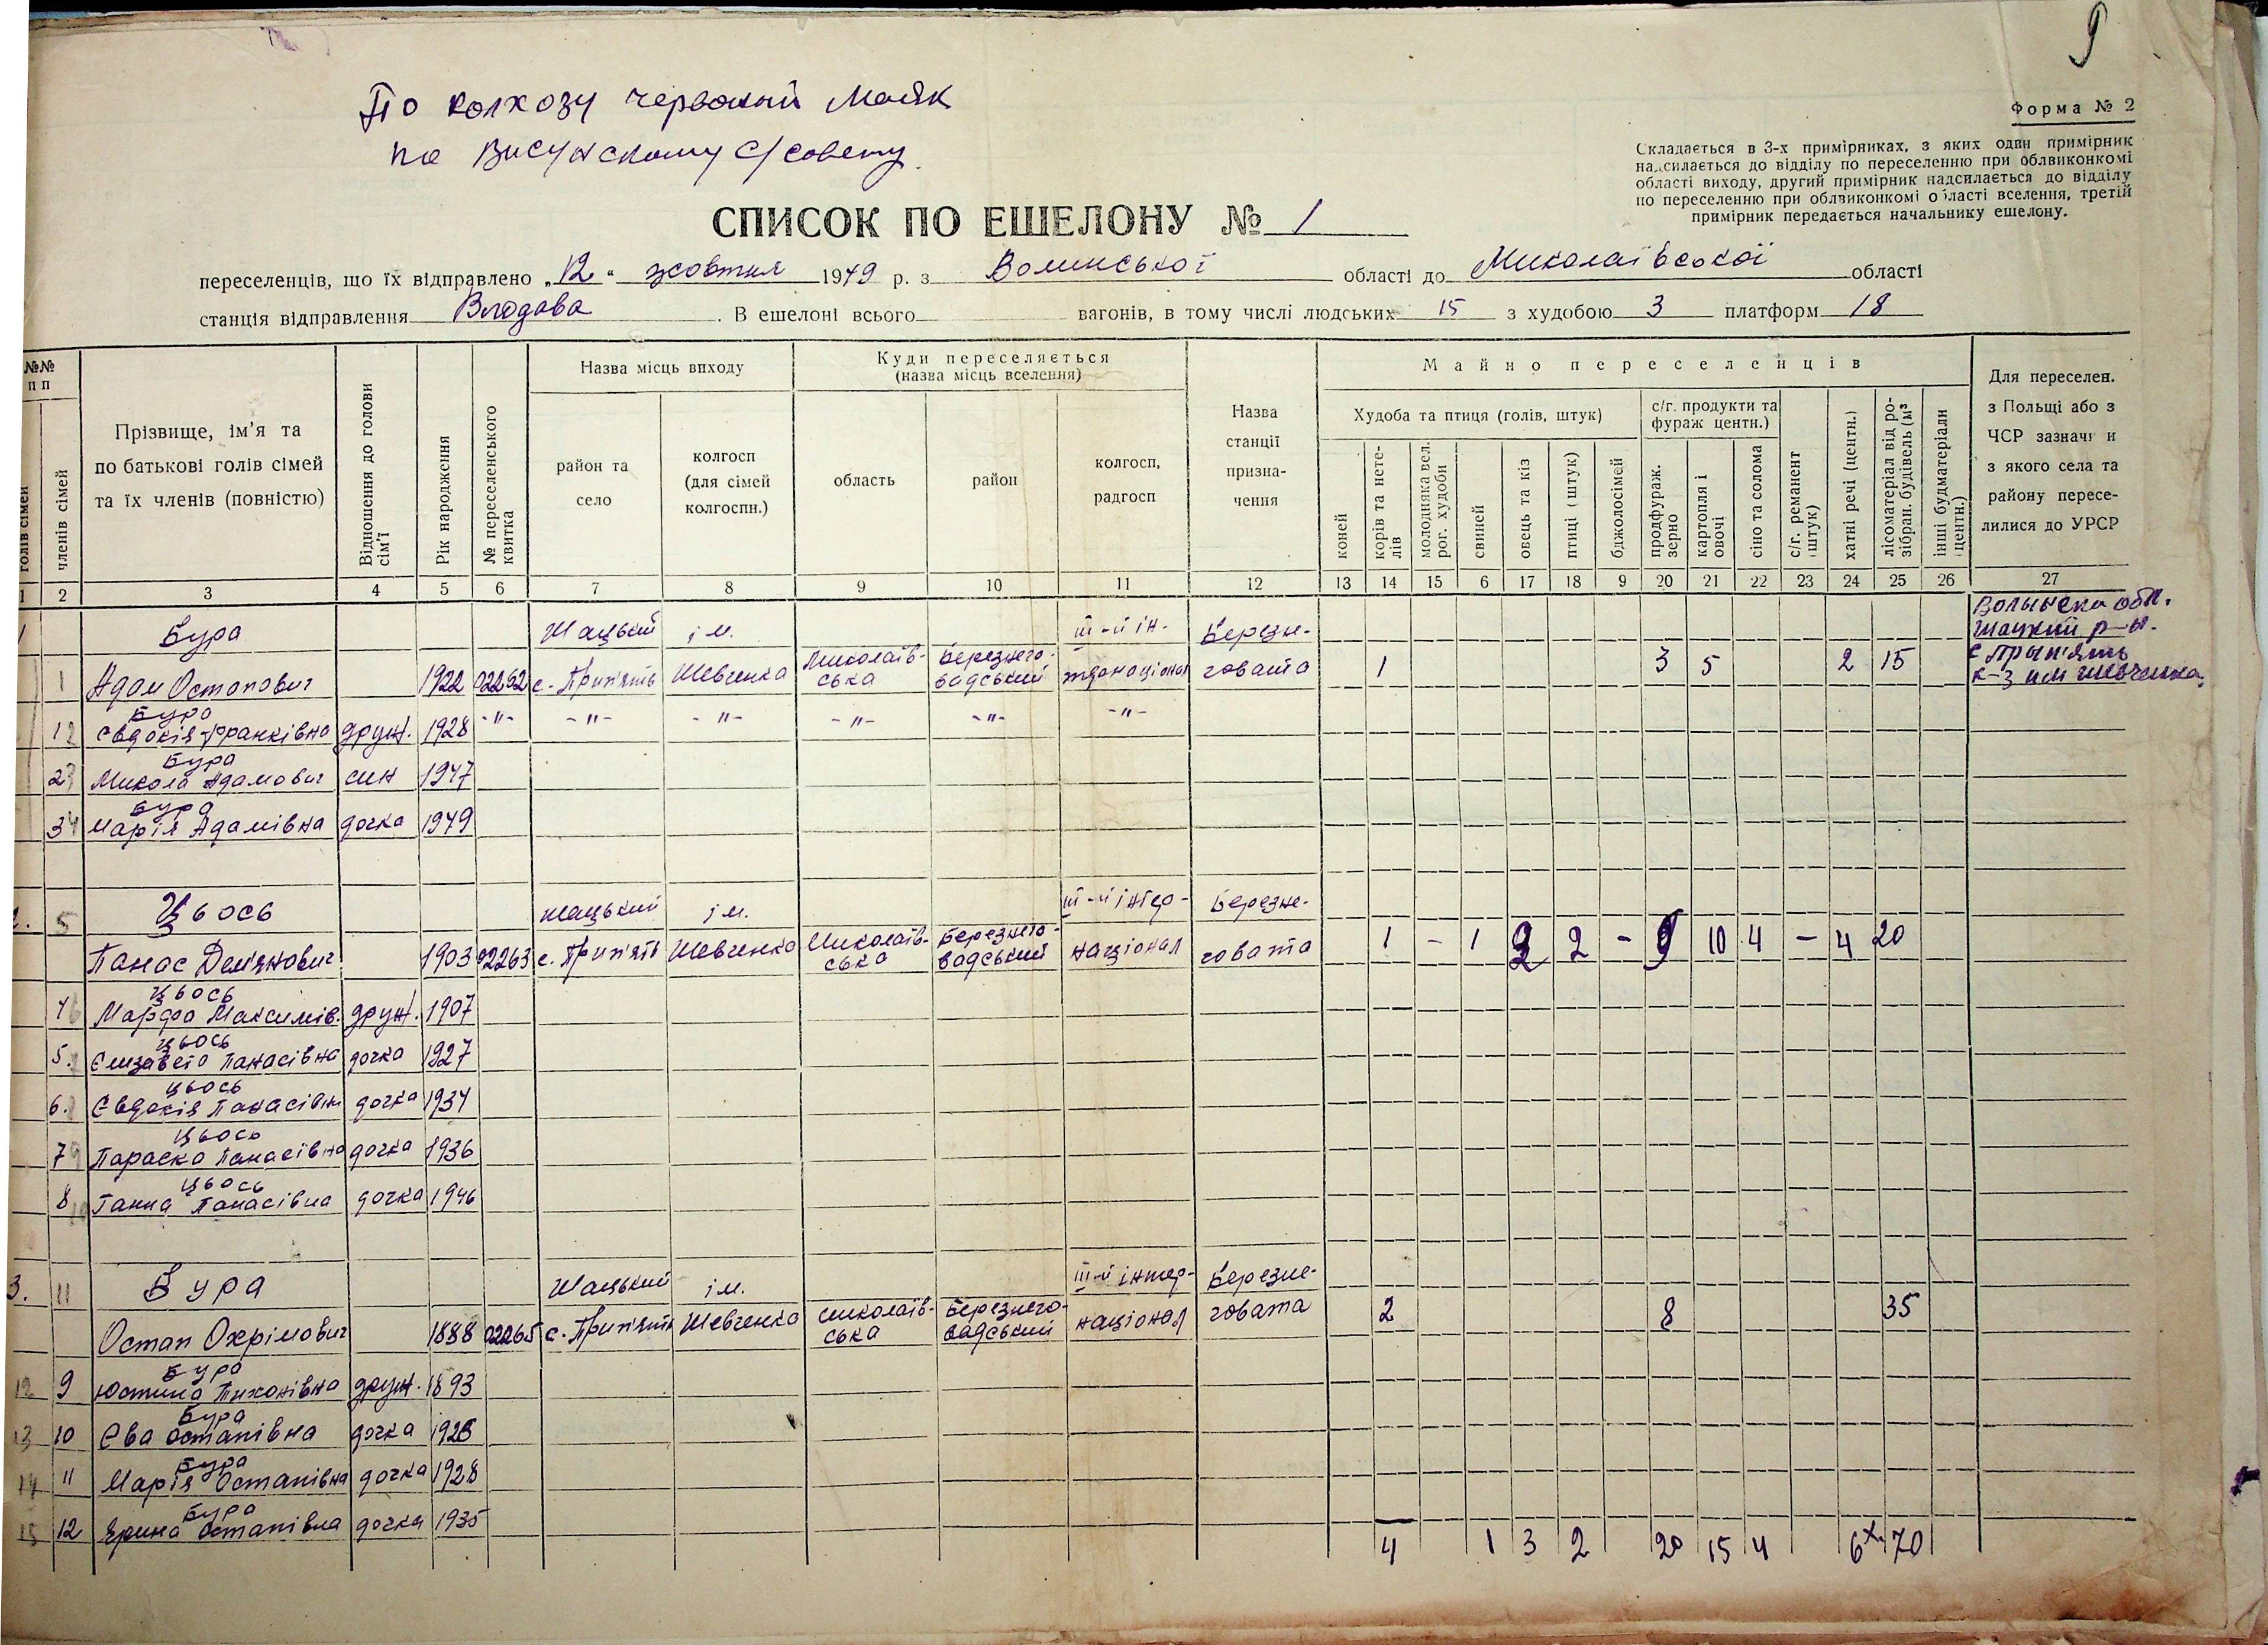 9
По колхозу червоний Маяк
по Висунскому с/совету.
Форма № 2
Складається в 3-х примірниках, з яких один примірник
надсилається до відділу по переселенню при облвиконкомі
області виходу, другий примірник надсилається до відділу
по переселенню при облвиконкомі області вселення, третій
примірник передається начальнику ешелону.
СПИСОК ПО ЕШЕЛОНУ № 1
переселенців, що їх відправлено „12“ жовтня 1949 р. з Волинської області до Миколаївської області
станція відправлення Влодава. В ешелоні всього вагонів, в тому числі людських 15 з худобою 3 платформ 18
№№ п п
голів сімей
членів сімей
Прізвище, ім’я та
по батькові голів сімей
та їх членів (повністю)
Відношення до голови сім’ї
Рік народження
№ переселенського квитка
Назва місць виходу
район та
село
колгосп
(для сімей
колгоспн.)
Куди переселяється
(назва місць вселення)
область
район
колгосп,
радгосп
Назва
станції
призна-
чення
Майно переселенців
Худоба та птиця (голів, штук)
коней
корів та нете-
лів
молодняка вел.
рог. худоби
свиней
овець та кіз
птиці (штук)
бджолосімей
с/г. продукти та
фураж центн.)
продфураж.
зерно
картопля і
овочі
сіно та солома
с/г. реманент
(штук)
хатні речі (центн.)
лісоматеріал від ро-
зібран. будівель (м³
інші будматеріали
(центн.)
Для переселен.
з Польщі або з
ЧСР зазначи и
з якого села та
району пересе-
лилися до УРСР
1 2 3 4 5 6 7 8 9 10 11 12 13 14 15 6 17 18 9 20 21 22 23 24 25 26 27
1 Бура Шацький ім. III-й ін- Березне- Волынска обл.
Шацкий р-н.
1 Адам Остапович 1922 02292 с. Прип'ять Шевченка Миколаїв-
ська Березнего-
вадський говата 1 3 5 2 15 с Прып'ять
к-з им Шевченка.
Бура
1 2 Євдокія Франківна друж. 1928 -"- -"- -"- -"- -"- -"-
Бура
2 3 Микола Адамович син 1947
Бура
3 4 Марія Адамівна дочка 1949
2. 5 Цьось Шацький ім. III-й інтер- Березне-
Панас Дем'янович 1903 02263 с. Прип'ять Шевченка Миколаїв-
ська Березнего-
вадський націонал говата 1 - 1 3 2 - 9 10 4 - 4 20
Цьось
4 6 Марфа Максимів. друж. 1907
Цьось
5. Єлизавета Панасівна дочка 1927
Цьось
6. Євдокія Панасівна дочка 1934
Цьось
7 9 Параска Панасівна дочка 1936
Цьось
8 10 Ганна Панасівна дочка 1946
3. 11 Бура Шацький ім. III-й інтер- Березне-
Остап Охрімович 1888 02265 с. Прип'ять Шевченка Миколаїв-
ська Березнего-
вадський націонал говата 2 8 35
Бура
12 9 Юстина Тихонівна друж. 1893
Бура
13 10 Єва Остапівна дочка 1926
Бура
14 11 Марія Остапівна дочка 1928
Бура
15 12 Ярина Остапівна дочка 1935
4 1 3 2 20 15 4 6 70